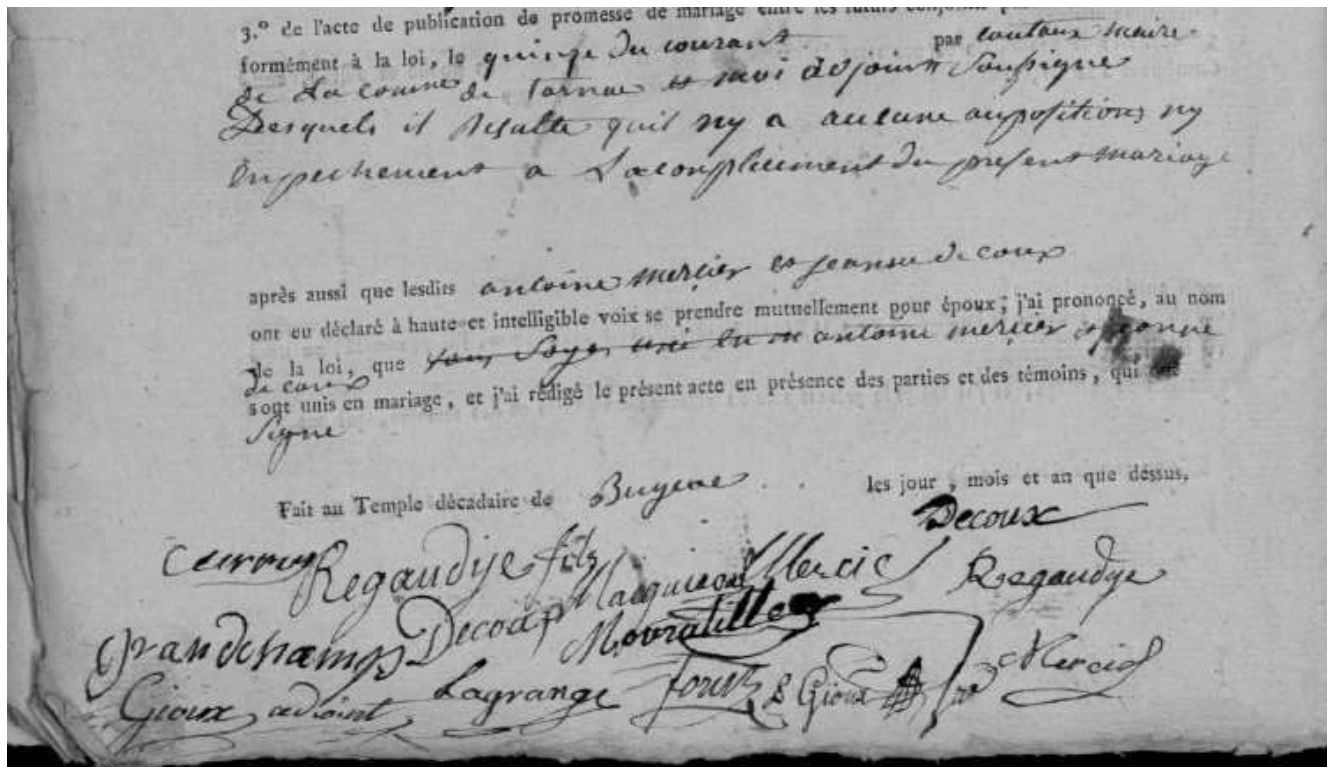 3.º de l'acte de publication de promesse de mariage entre les futurs conjoints
formément à la loi, le quinze du courant par coutoux maire
de La comne de tarnac et moi adjoint Soussigne
Desquels il Resulte quil ny a aucune aupositions ny
Enpechement a Laconplicement du present mariage
après aussi que lesdits antoine mercier et jeanne de coux
ont eu déclaré à haute et intelligible voix se prendre mutuellement pour époux ; j'ai prononcé, au nom
de la loi, que antoine mercier et jeanne
de coux
sont unis en mariage, et j'ai rédigé le présent acte en présence des parties et des témoins, qui ont
Signe
Fait au Temple décadaire de Bugeac les jour, mois et an que déssus,
Decoux
Regaudye fils Mercie Regaudye
Grandchamp Decoux
Gioux adjoint Lagrange S Gioux Mercie